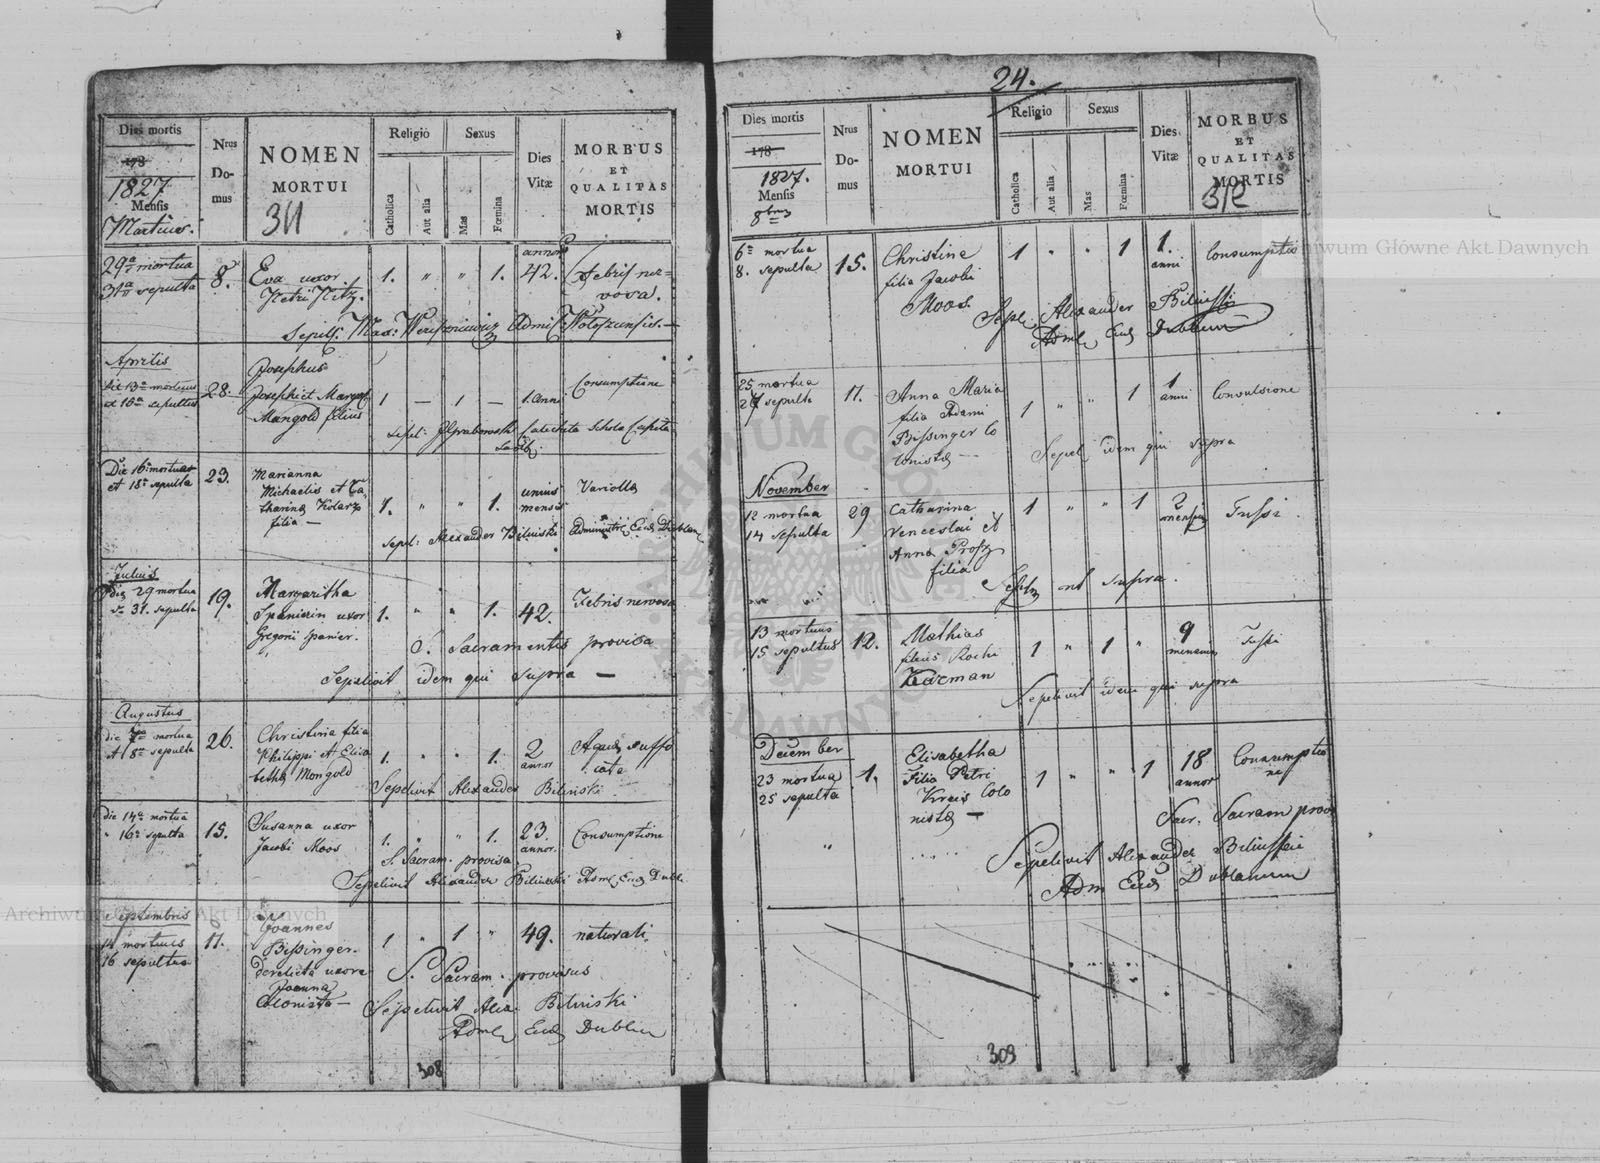 Dies mortis
178
1827
Mensis
Martius.
Nrus
Do-
mus
NOMEN
MORTUI
311
Religio
Catholica
Aut alia
Sexus
Mas
Fœmina
Dies
Vitæ
MORBUS
ET
QUALITAS
MORTIS
29a mortua
31a sepulta
8.
Eva uxor
Petrii Pitz.
1. " " 1.
annor
42.
Febris ner-
vosa.
Aprilis
Die 13a mortuus
et 15a sepultus
28.
Josephus
Josephi et Marg.
Mangold filius
1 — 1 —
1. anni
Consumptione
sepel: Grabowski
Die 16a mortua
et 18a sepulta
23.
Marianna
Michaelis et Ca-
tharina Kolarz
filia —
1. " " 1.
unius
mensis
Variola
sepel: Alexander Biliński Administr. Eccl. Dublan.
Julius
die 29 mortua
31. sepulta
19.
Margaritha
Spanierin uxor
Gregorii Spanier.
1. " " 1.
42.
Febris nervosa
S. Sacramentis provisa
Sepelivit idem qui supra —
Augustus
die 7ma mortua
et 8a sepulta
26.
Christina filia
Philippi et Elisa
betha Mongold
1. " " 1.
2
annor
Aqua suffo
cata
Sepelivit Alexander Biliński
die 14a mortua
" 16a sepulta
15.
Susanna uxor
Jacobi Moos
1. " " 1.
23.
annor.
Consumptione
S. Sacram. provisa
Sepelivit Alexander Biliński Adml Eccl Dubl.
Septembris
14 mortuus
16 sepultus
11.
Joannes
Bissinger.
derelicta uxore
Joanna
Colonista —
1 " 1 "
49.
naturali.
S. Sacram. provisus
Sepelivit Alex. Biliński
Adml Eccl Dublan
308
24.
Dies mortis
178
1827.
Mensis
8bris
Nrus
Do-
mus
NOMEN
MORTUI
Religio
Catholica
Aut alia
Sexus
Mas
Fœmina
Dies
Vitæ
MORBUS
ET
QUALITAS
MORTIS
312
6a mortua
8. sepulta
15.
Christine
filia Jacobi
Moos.
1 " " 1
1.
anni
Consumptio
Sepel. Alexander Biliński
Adml Eccl Dublan
25 mortua
27 sepulta
11.
Anna Maria
filia Adami
Bissinger Co
lonista —
1 " " 1
1
anni
Convulsione
Sepel idem qui supra
November
12 mortua
14 sepulta
29
Catharina
Venceslai et
Anna
filia
1 " " 1
2
mensium
Tussi.
Sepel ut supra.
13 mortuus
15 sepultus
12.
Mathias
filius Rochi
1 " 1 "
9
mensium
Tussi
Sepelivit idem qui supra
December
23 mortua
25 sepulta
1.
Elisabetha
Filia Petri
Kreis Colo
nista —
1 " " 1
18
annor
Consumptio
ne
Sacr. Sacram provi
Sepelivit Alexander Biliński
Adm Eccl Dublanum
309
Archiwum Główne Akt Dawnych
Archiwum Główne Akt Dawnych
ARCHIWUM GŁÓWNE AKT DAWNYCH